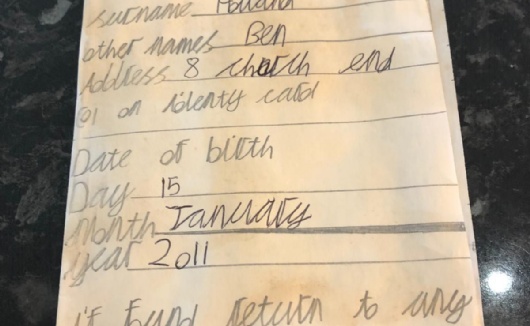 surname Holland
other names Ben
Address 8 church end
on identy card
Date of birth
Day 15
Month January
year 2011
if found return to any